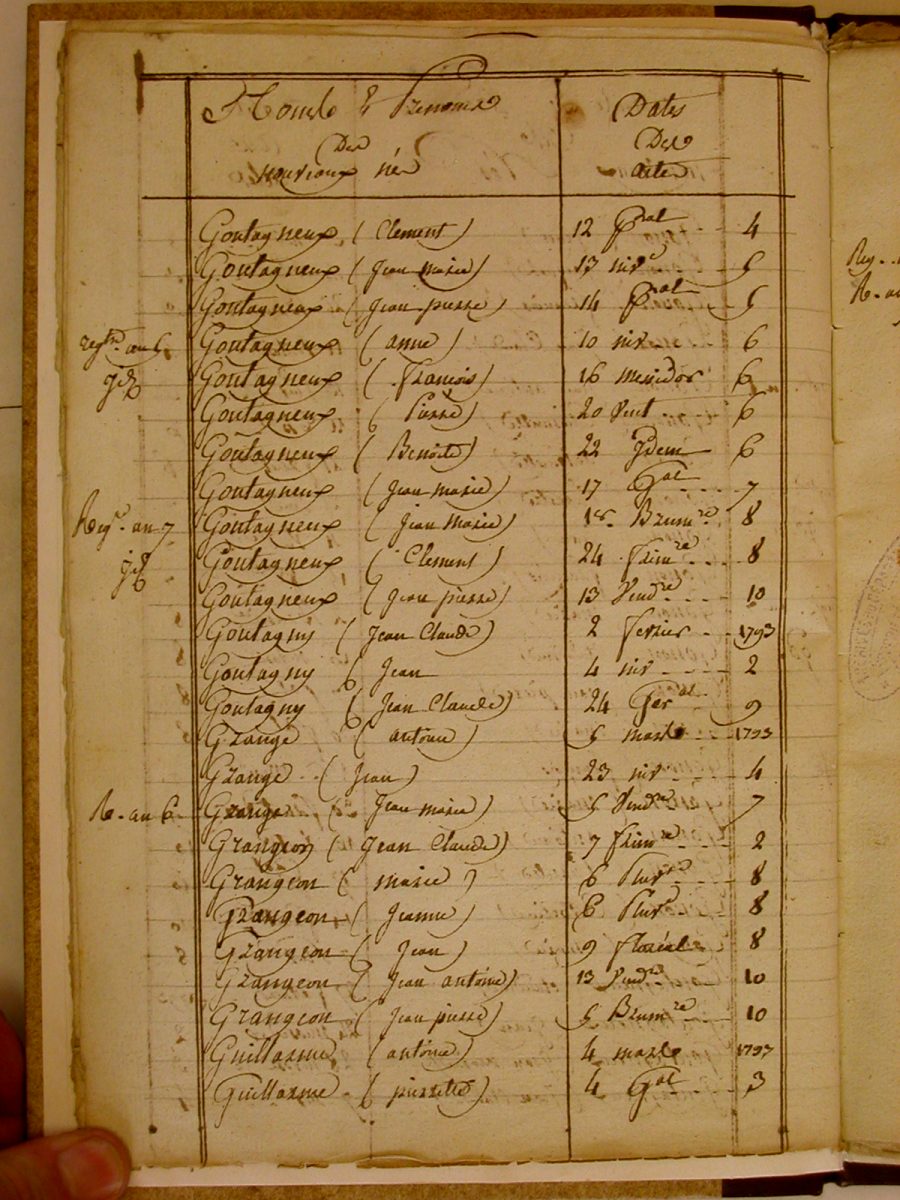 Noms & Prenoms
Des
nouveaux nés
Dates
Des
actes
Goutagneux (Clement) 12 Pral 4
Goutagneux (Jean marie) 13 nive 5
Goutagneux (Jean pierre) 14 Pral 5
regtre an 6 Goutagneux (anne) 10 niv 6
Goutagneux (François) 16 Messidor 6
Goutagneux (Pierre) 20 Vent 6
Goutagneux (Benoite) 22 Idem 6
Goutagneux (Jean marie) 17 Gal 7
Regre an 7 Goutagneux (Jean Marie) 1er Brumre 8
Goutagneux (Clement) 24 Frimre 8
Goutagneux (Jean pierre) 13 Vendre 10
Goutagny (Jean Claude) 2 fevrier 1793
Goutagny (Jean 4 niv 2
Goutagny (Jean Claude) 24 Geral 9
Grange (antoine) 5 mars 1793
Grange (Jean) 23 niv 4
R. an 6 Grange (Jean marie) 5 Vendre 7
Grangeon (Jean Claude) 7 frimre 2
Grangeon (marie) 6 Pluve 8
Grangeon (Jeanne) 6 Pluve 8
Grangeon (Jean) 9 floréal 8
Grangeon (Jean antoine) 13 Vendre 10
Grangeon (Jean pierre) 5 Brumre 10
Guillarme (antoine) 4 mars 1793
Guillarme (pierrette) 4 Gal 3